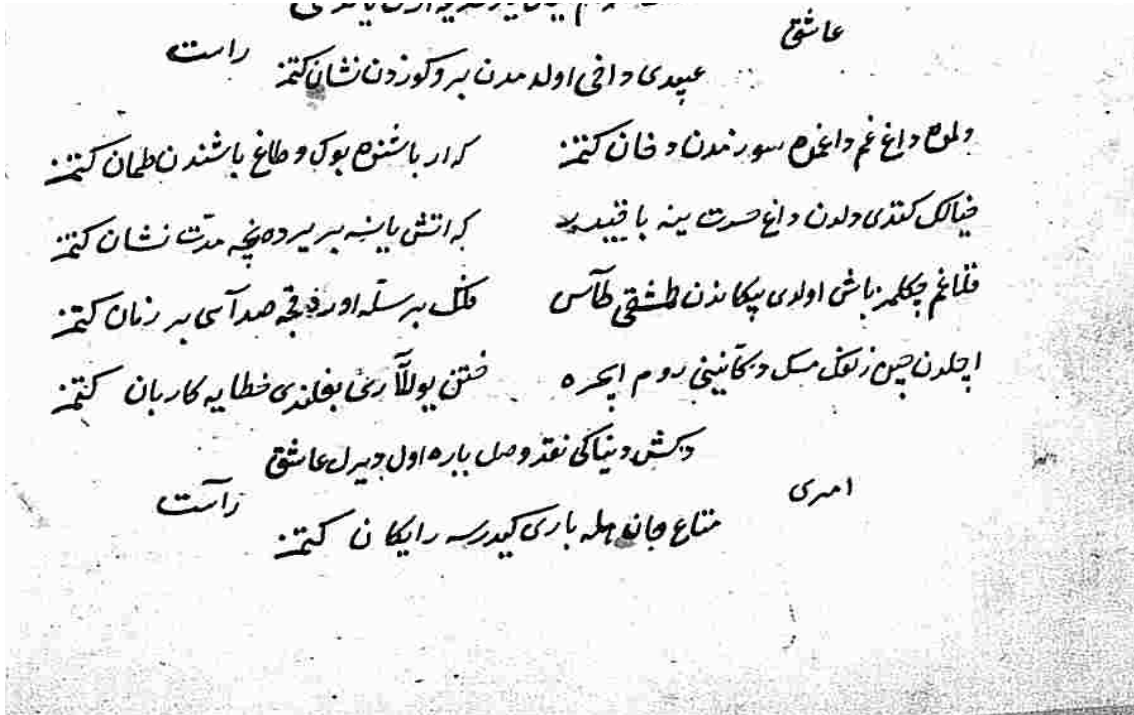 عاشق
راست
عبیدی داخی اولدمدن برو کوزدن نشان کتمز
دلمده داغ غم داغمده سوزمدن دخان کتمز
که ار باشنده بوک و طاغ باشندن طمان کتمز
خیالک کتدی دلدن داغ حسرت ینه باقیدر
که اتش یانسه بر یرده نیچه مدت نشان کتمز
باش اولدی پیکاندن طاس
فلک بر صداسی بر زمان کتمز
اچلدن چین زلفک مسک دکانینی روم ایچره
ختن یوللاری بغلندی خطایه کاربان کتمز
دکش دنیاکی نقد وصل یاره اول دیرل عاشق
امری
راست
متاع جانه هله باری کیدرسه رایکان کتمز